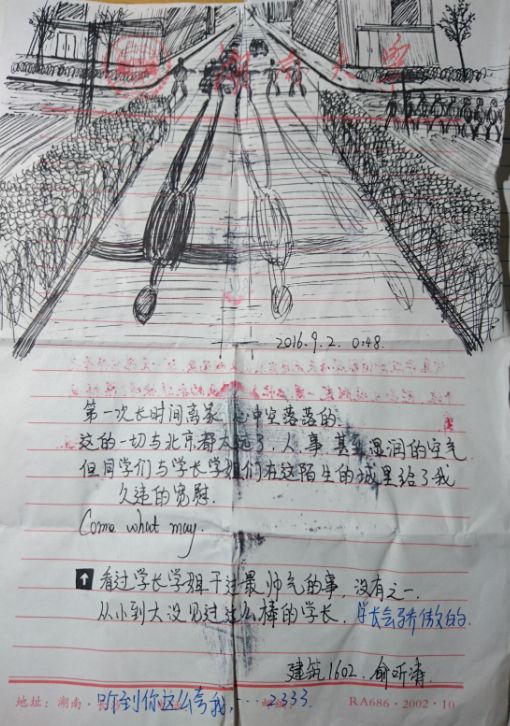 湖南大学
2016.9.2. 0:48.
第一次长时间离家 心中空落落的
这的一切与北京都大视了, 人 事 甚至湿润的空气
但同学们与学长学姐们在这陌生的城里给了我
久违的宽慰.
Come what may.
看过学长学姐干过最帅气的事, 没有之一.
从小到大没见过这么棒的学长, 学长会骄傲的.
建筑1602. 俞听涛.
地址: 湖南· RA686·2002·10
听到你这么夸我, ···2333.